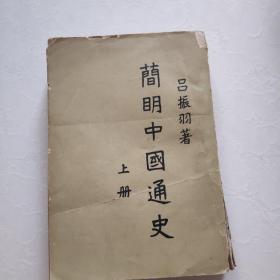 呂振羽著
簡明中國通史
上册